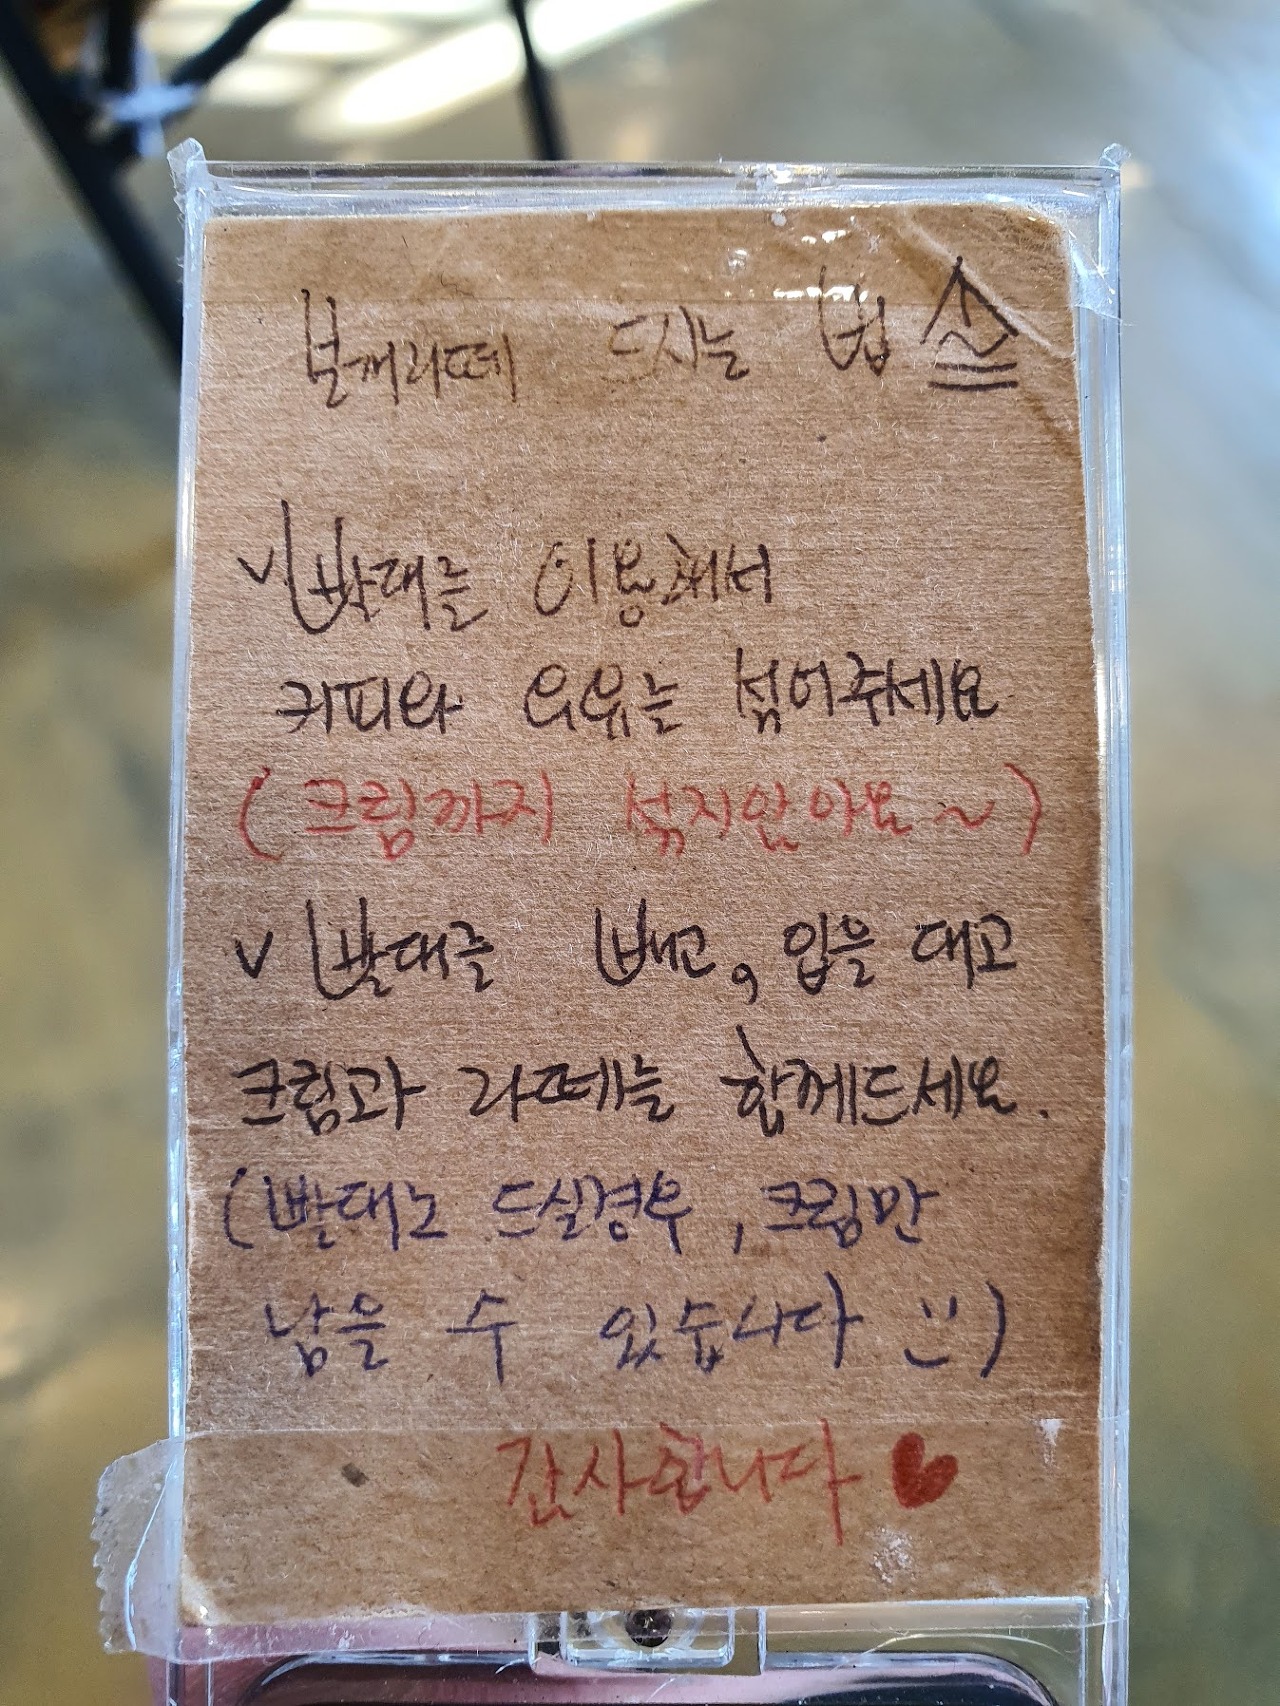 볼깨라떼 드시는 법
√ 빨대를 이용해서
커피와 우유는 섞어주세요
(크림까지 섞지않아요~)
√ 빨대를 빼고, 입을 대고
크림과 라떼는 함께드세요.
(빨대로 드실경우, 크림만
남을 수 있습니다 :))
감사합니다 ♥